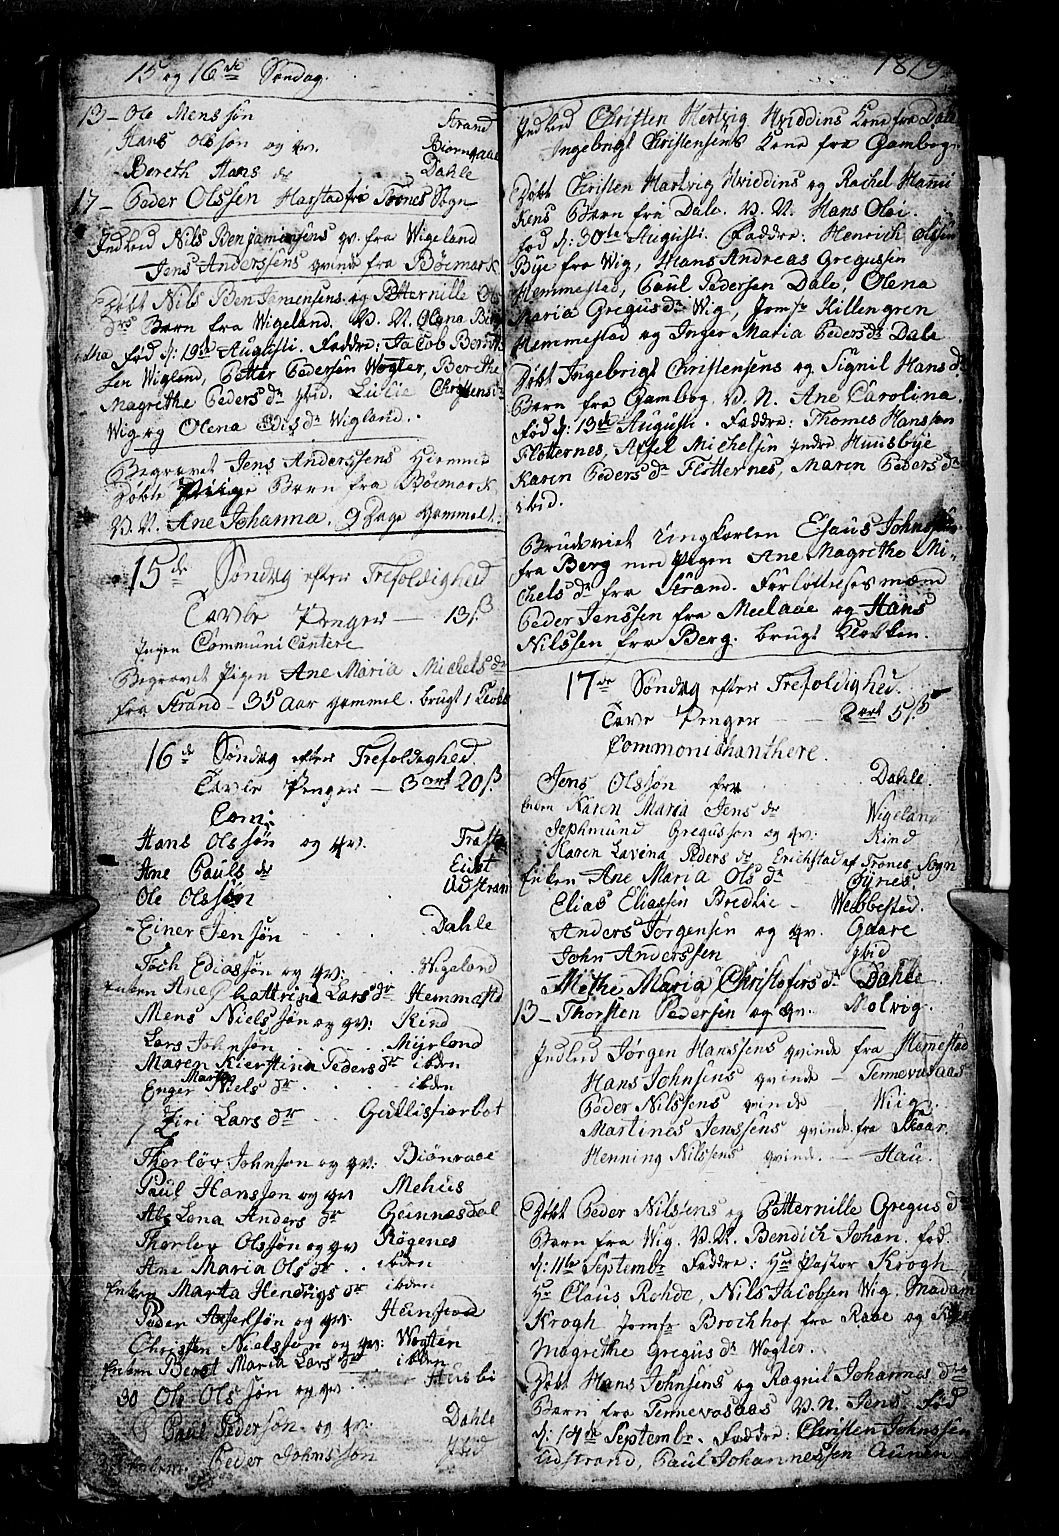 15 og 16de Søndag.
13 – Ole Menssøn Strand
Hans Olssøn og qv. Biørnraae
Bereth Hans dr Dahle
17 – Peder Olssen Harstad fra Trones Sogn
Indled Nils Benjaminsens qv. fra Wigeland
Jens Anderssens qvinde fra Bøemark
Døbt Nils Benjamensens og Petternille Ols
drs Barn fra Wigeland. V. N. Olena Ber
etha fød d: 19de Augusti. Faddre: Jacob Bendix
sen Wigland, Petter Pedersen Wogter, Berethe
Magrethe Peders dr ibid. Lucie Christens dr
Wig og Olena Edis dr Wigland.
Begravet Jens Anderssens hiemme
døbte Pige Barn fra Bøemark
V. N. Ane Johanna. 9 Dage gammel.
15de Søndag efter Trefoldighed
Tavle Penger — 13 ß
Ingen Communicantere
Begravet Pigen Ane Maria Michels dr
fra Strand – 35 Aar gammel. brugt 1 Klokke
16de Søndag efter Trefoldighed.
Tavle Penger — 3 ort 20 ß
Com:
Hans Olssøn og qv. Trasta
Ane Pauls dr Eidet
Ole Olssøn Udstrand
Einer Jensøn Dahle
Toch Ediassøn og qv: Wigeland
Enken Ane Chattrina Lars dr Hemmestad
Mens Nielssøn og qv: Rind
Lars Johnsøn Myrlond
Maren Kierstina Peders dr ibden
Enger Marta Niels dr ibden
Siri Lars dr Gullisfiorbot
Thorløv Johnsøn og qv: Biönraae
Paul Hanssøn og qv Mehus
Abelena Anders dr Geinnesdal
Thorlov Olssøn og qv Røgenes
Ane Maria Ols dr ibden
Enken Marta Hendrigs dr ibden
Peder Axselsøn og qv: Heinstad
Christen Nielssøn og qv: Wogten
Enken Beret Maria Lars dr ibden
30 Ole Olssøn og qv. Husbi
Paul Pedersøn og qv. Dahle
Peder Johnssøn ibid
1819
Indled Christen Hertvig Hviddins Kone fra Dale
Ingebrigt Christensens Kone fra Gambogen
Døbt Christen Hartvig Hviddins og Rachel Hanni
kens Barn fra Dale. V. N. Hans Olai.
fød d: 30te Augusti. Faddre: Henrich Olssen
Bye fra Wig, Hans Andreas Gregussen
Hemmestad, Paul Pedersen Dale, Olena
Maria Gregus dr Wig, Jomfr Killengren
Hemmestad og Inger Maria Peders dr Dale
Døbt Ingebrigt Christensens og Signil Hans dr
Barn fra Gambog. V. N. Ane Carolina.
fød d: 13de Augusti. Faddre: Thomes Hanssen
Flotternes, Affel Michelsen Indre Huusbye
Karen Peders dr Flotternes, Maren Peders dr
ibid.
Brudeviet Ungkarlen Esaus Johnssen
fra Berg med Pigen Ane Magrethe Mi-
chels dr fra Strand. Forløftelsesmænd
Peder Jenssen fra Meelaae og Hans
Nilssen fra Berg. brugt Klokken.
17de Søndag efter Trefoldighed.
Tavle Penger — 2 ort 5 ß
Commonichanthere.
Jens Olssøn fra Dahle
Enken Karen Maria Jens dr Wigeland
Jephmund Gregussøn og qv: Rind
Karen Lavina Peders dr Erichstad af Trones Sogn
Enken Ane Maria Ols dr Fynes
Elias Eliassen Bredlie Webbestad.
Anders Jørgensen og qv. Gaare
John Anderssen ibid
Mette Maria Christofers dr Dahle
13 – Thorsten Pedersen og qv. Molvig.
Indled Jørgen Hanssens qvinde fra Hemestad
Hans Johnsens qvinde – Tennevasaas
Peder Nilssens qvinde – Wiig.
Martines Jenssens qvinde fra Skaar
Henning Nilssens qvinde – Hau.
Døbt Peder Nilssens og Petternille Gregus dr
Barn fra Wig. V. N. Bendich Johan. fød.
d: 11te Septembr Faddre: Hr Pastor Krogh
Hr Claus Rohde, Nils Jacobsen Wig, Madam
Krogh Jomfr Brochhof fra Raae og
Magrethe Gregus dr Wogter.
Døbt Hans Johnsens og Ragnil Johannes drs
Barn fra Tennevasaas V. N. Jens. fød
d: 14de Septembr. Faddre: Christen Johnssen
Udstrand, Paul Johannessen Aunen